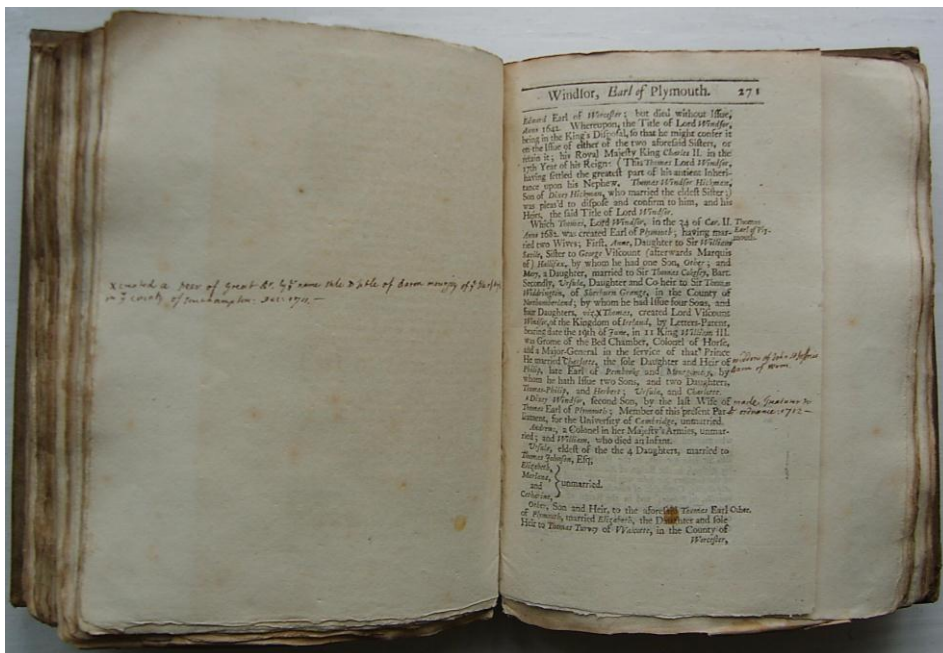 x created a Peer of Great Br. by ye name stile & title of Baron mountjoy of ye
in ye county of Southampton. Dec: 1711. —
Windsor, Earl of Plymouth. 271
Edward Earl of Worcester; but died without Issue,
Anno 1642. Whereupon, the Title of Lord Windsor,
being in the King's Disposal, so that he might confer it
on the Issue of either of the two aforesaid Sisters, or
retain it; his Royal Majesty King Charles II. in the
17th Year of his Reign (This Thomas Lord Windsor,
having settled the greatest part of his antient Inheri-
tance upon his Nephew, Thomas Windsor Hickman,
Son of Dixey Hickman, who married the eldest Sister;)
was pleas'd to dispose and confirm to him, and his
Heirs, the said Title of Lord Windsor.
Which Thomas, Lord Windsor, in the 34 of Car. II. Thomas
Anno 1682. was created Earl of Plymouth; having mar- Earl of Ply-
ried two Wives; First, Anne, Daughter to Sir William mouth.
Savile, Sister to George Viscount (afterwards Marquis
of) Hallifax, by whom he had one Son, Other; and
Mary, a Daughter, married to Sir Thomas Cokesey, Bart.
Secondly, Ursula, Daughter and Co-heir to Sir Thomas
Widdrington, of Sherburn Grange, in the County of
Northumberland; by whom he had Issue four Sons, and
four Daughters, viz. x Thomas, created Lord Viscount
Windsor, of the Kingdom of Ireland, by Letters-Patent,
bearing date the 19th of June, in 11 King William III.
was Grome of the Bed Chamber, Colonel of Horse,
and a Major-General in the service of that Prince
He married Charlotte, the sole Daughter and Heir of widdow of John Ld Jefferies
Philip, late Earl of Pembroke and Montgomery, by Baron of Wem.
whom he hath Issue two Sons, and two Daughters,
Thomas-Philip, and Herbert; Ursula, and Charlotte.
Dixey Windsor, second Son, by the last Wife of made
Thomas Earl of Plymouth; Member of this present Par- ordnance. 1712 —
liament, for the University of Cambridge, unmarried.
Andrew, a Colonel in her Majesty's Armies, unmar-
ried; and William, who died an Infant.
Ursula, eldest of the the 4 Daughters, married to
Thomas Johnson, Esq;
Elizabeth,
and unmarried.
Catharine,
Other, Son and Heir, to the aforesaid Thomas Earl Other.
of Plymouth, married Elizabeth, the Daughter and sole
Heir to Thomas Turvey of in the County of
Worcester,